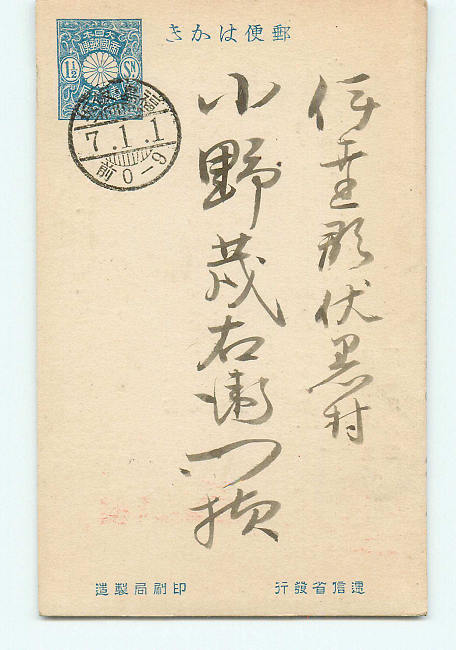 郵便はかき
大日本
帝國郵便
1½ Sn
7.1.1
前0-9
伊達郡伏黒村
小野茂右衛門様
逓信省發行
印刷局製造